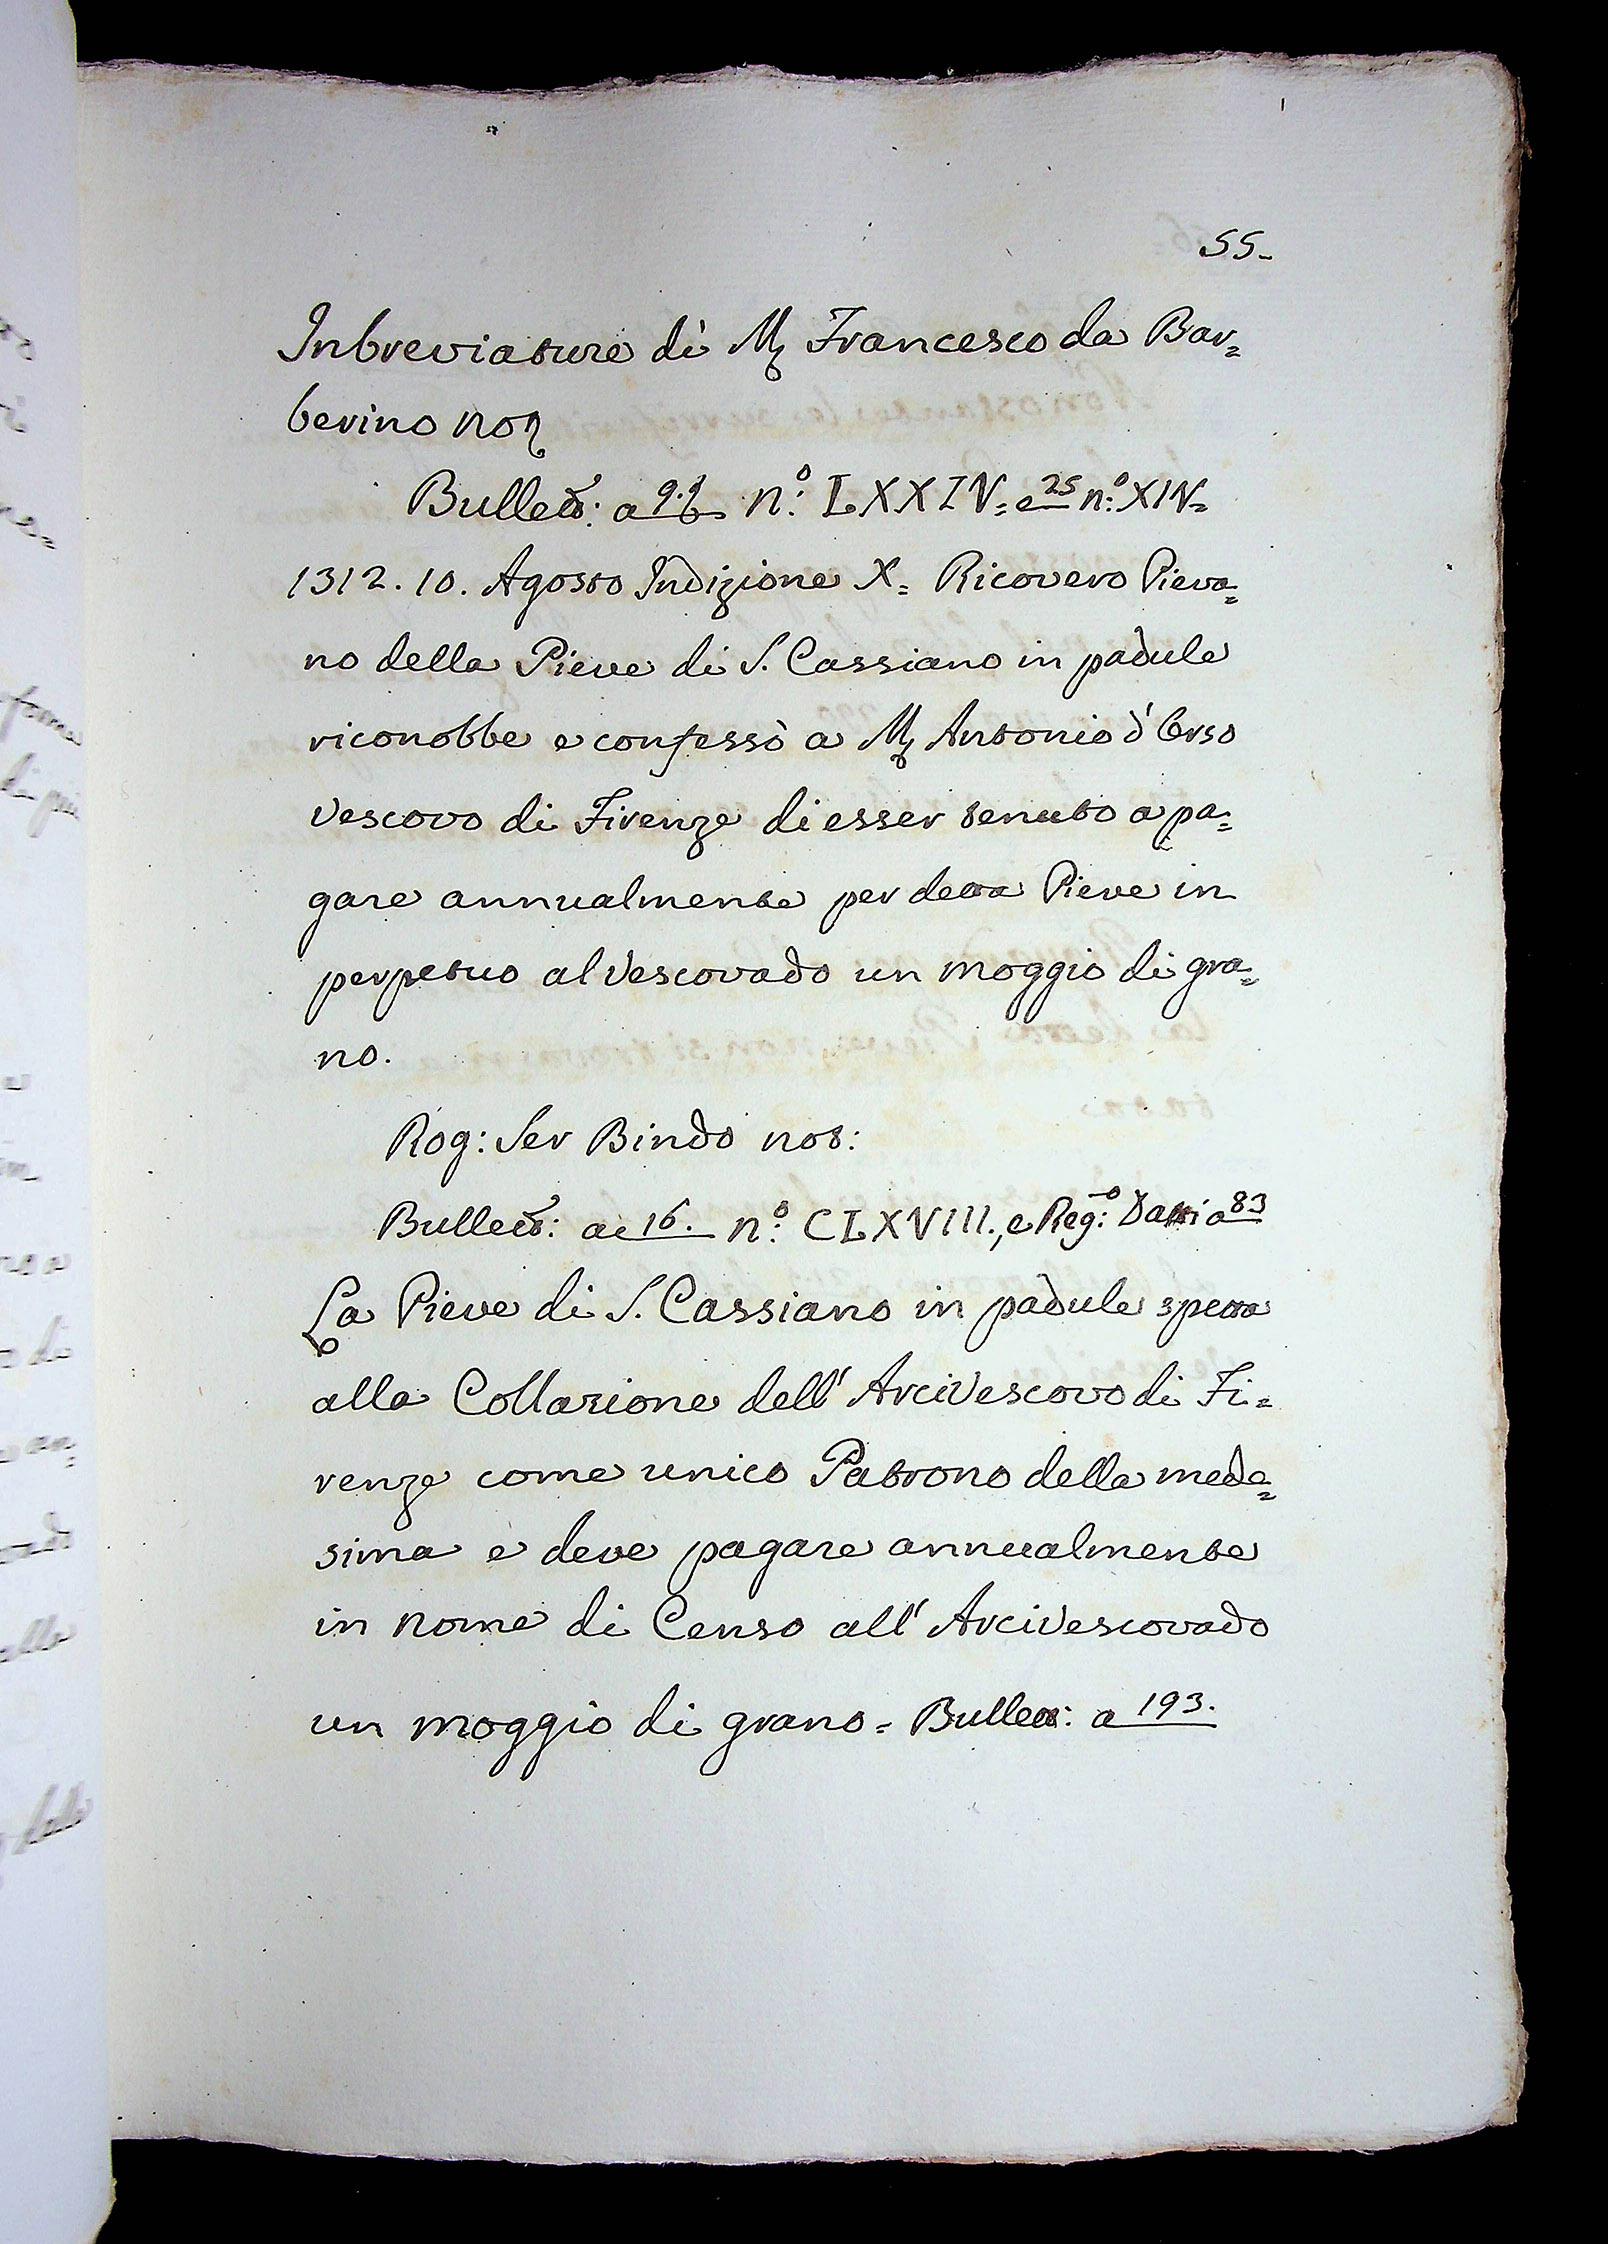 55.
Inbreviature di M. Francesco da Bar=
berino not
Bullett: a 91 n.º LXXIV= e 25 n.º XIV=
1312. 10. Agosto Indizione X= Ricovero Pieva=
no della Pieve di S. Cassiano in padule
riconobbe e confessò a M. Antonio d'Orso
Vescovo di Firenze di esser tenuto a pa=
gare annualmente per detta Pieve in
perpetuo al Vescovado un moggio di gra=
no.
Rog: Ser Bindo not:
Bullett: a 16. n.º CLXVIII., e Reg:º Datti a 83
La Pieve di S. Cassiano in padule spetta
alla Collazione dell' Arcivescovo di Fi=
renze come unico Patrono della mede=
sima e deve pagare annualmente
in nome di Censo all' Arcivescovado
un moggio di grano= Bullett: a 193.